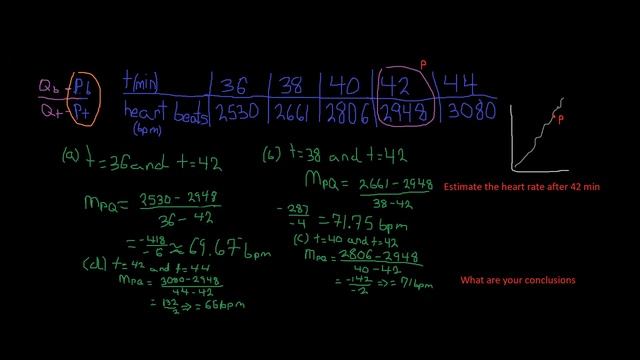 P
Qb - Pb t(min) 36 38 40 42 44
Qt - Pt heart beats 2530 2661 2806 2948 3080
(bpm)
P
(a) t=36 and t=42
mPQ = 2530-2948
36-42
= -418
-6 ≈ 69.67 bpm
(b) t=38 and t=42
mPQ = 2661-2948
38-42
-287
-4 = 71.75 bpm
(c) t=40 and t=42
mPQ = 2806-2948
40-42
= -142
-2 => = 71bpm
(d) t=42 and t=44
mPQ = 3080-2948
44-42
= 132
2 => = 66bpm
Estimate the heart rate after 42 min
What are your conclusions